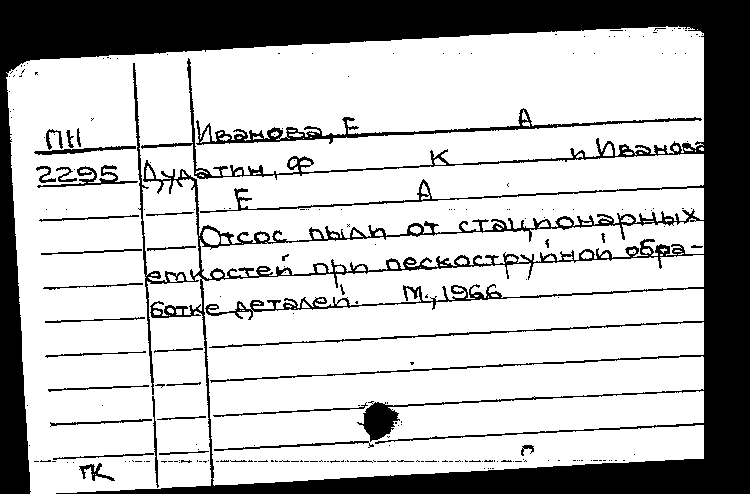 Иванова, Е А
ПН
2295 Дудатин, Ф К и Иванова
Е А
Отсос пыли от стационарных
емкостей при пескоструйной обра-
ботке деталей. М., 1966
ПК